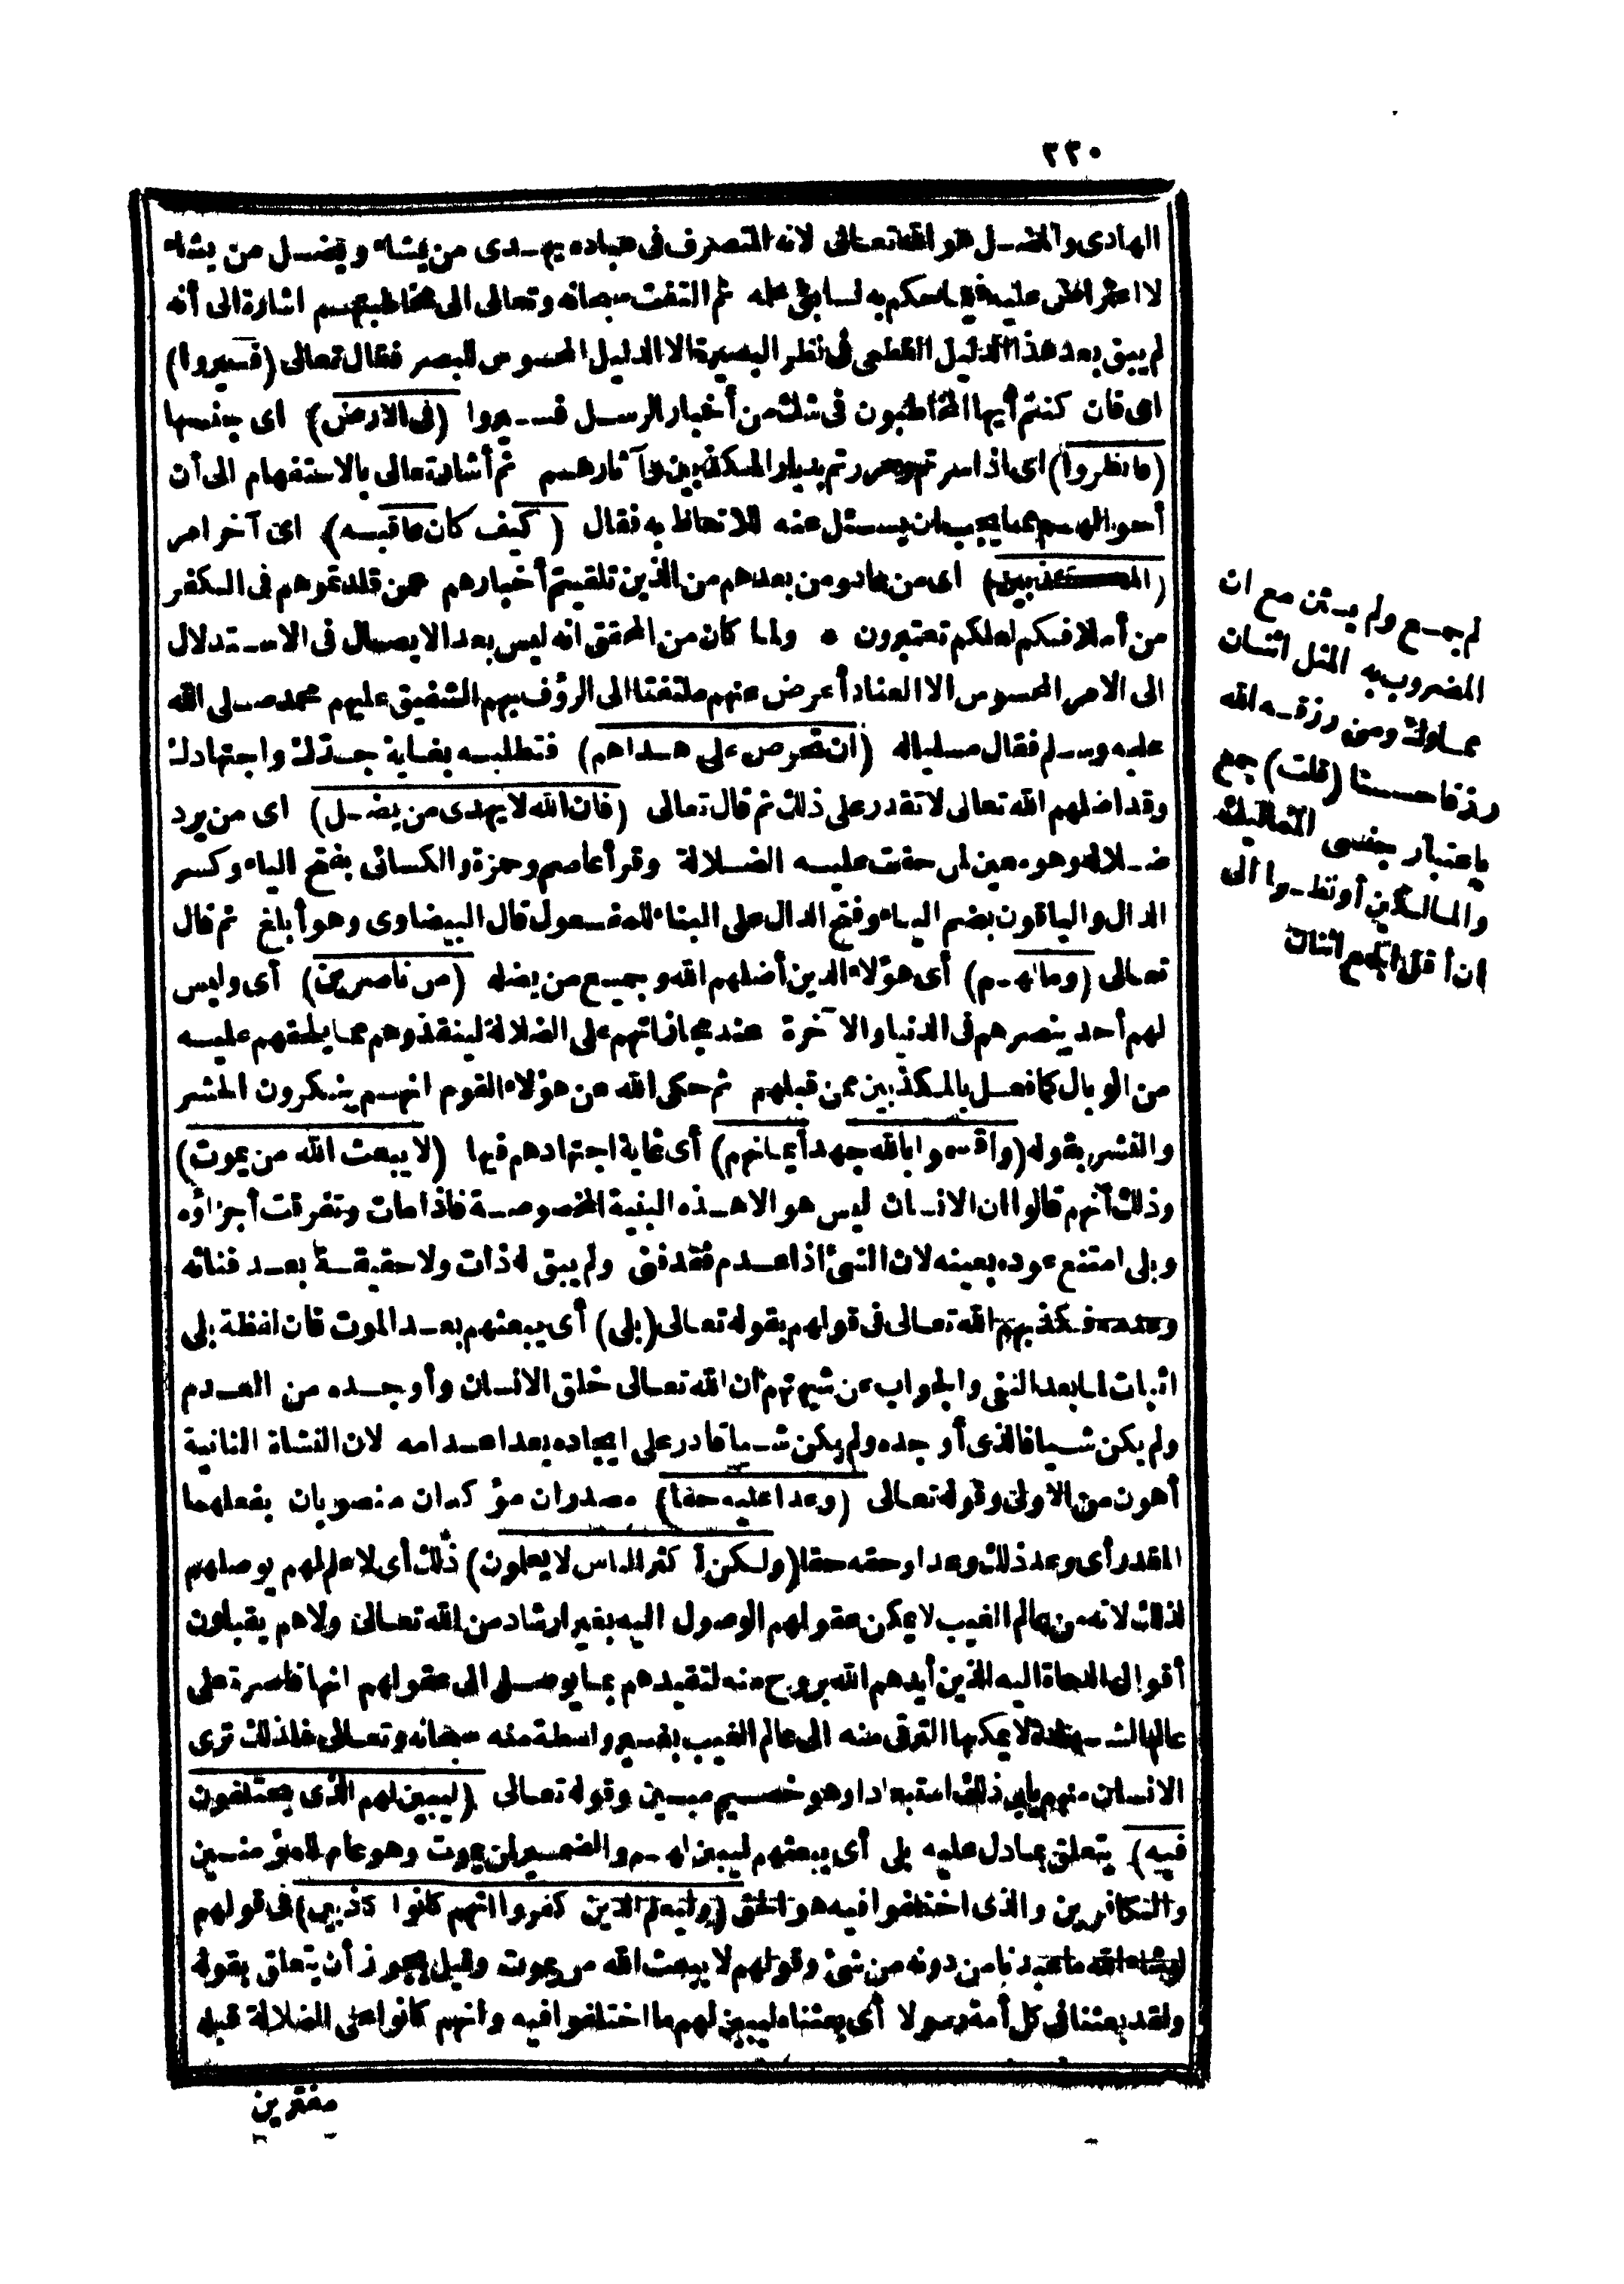 ٢٣٠
الهادى والمضل هو الله تعالى لانه المتصرف فى عباده يهدى من يشاء ويضل من يشاء
لا اعتراض عليه فيما حكم به لسابق علمه ثم التفت سبحانه وتعالى الى مخاطبتهم اشارة الى أنه
لم يبق بعد هذا الدليل القطعى فى نظر البصيرة الا الدليل المحسوس للبصر فقال تعالى (فسيروا)
اى فان كنتم أيها المخاطبون فى شك من أخبار الرسل فسيروا (فى الارض) اى جنسها
(فانظروا) اى اذا سرتم ومررتم بديار المكذبين وآثارهم ثم أشار تعالى بالاستفهام الى أن
أحوالهم مما يجب ان يسئل عنه للاتعاظ به فقال (كيف كان عاقبة) اى آخر امر
(المكذبين) اى من عاد ومن بعدهم من الذين تلقيتم أخبارهم ممن قلدتموهم فى الكفر
من أسلافكم لعلكم تعتبرون * ولما كان من المحقق انه ليس بعد الايصال فى الاستدلال
الى الامر المحسوس الا العناد أعرض عنهم ملتفتا الى الرؤف بهم الشفيق عليهم محمد صلى الله
عليه وسلم فقال مسليا له (ان تحرص على هداهم) فتطلبه بغاية جدّك واجتهادك
وقد اضلهم الله تعالى لا تقدر على ذلك ثم قال تعالى (فان الله لا يهدى من يضل) اى من يرد
ضلاله وهو معين لمن حقت عليه الضلالة وقرأ عاصم وحمزة والكسائى بفتح الياء وكسر
الدال والباقون بضم الياء وفتح الدال على البناء للمفعول قال البيضاوى وهو أبلغ ثم قال
تعالى (وما لهم) أى هؤلاء الذين أضلهم الله وجميع من يضله (من ناصرين) أى وليس
لهم أحد ينصرهم فى الدنيا والآخرة عند مجازاتهم على الضلالة لينقذوهم مما يلحقهم عليه
من الوبال كما فعل بالمكذبين ممن قبلهم ثم حكى الله عن هؤلاء القوم انهم ينكرون الحشر
والنشر بقوله (وأقسموا بالله جهد أيمانهم) أى غاية اجتهادهم فيها (لا يبعث الله من يموت)
وذلك أنهم قالوا ان الانسان ليس هو الا هذه البنية المخصوصة فاذا مات وتفرقت أجزاؤه
وبلى امتنع عوده بعينه لان الشئ اذا عدم فقد فنى ولم يبق له ذات ولا حقيقة بعد فنائه
وعدمه فكذبهم الله تعالى فى قولهم بقوله تعالى (بلى) أى يبعثهم بعد الموت فان لفظة بلى
اثبات لما بعد النفى والجواب عن شبهتهم أن الله تعالى خلق الانسان وأوجده من العدم
ولم يكن شيأ فالذى أوجده ولم يكن شيأ قادر على ايجاده بعد اعدامه لان النشاة الثانية
أهون من الاولى وقوله تعالى (وعدا عليه حقا) مصدران مؤكدان منصوبان بفعلهما
المقدر أى وعد ذلك وعدا وحقه حقا (ولكن أكثر الناس لا يعلمون) ذلك أى لا علم لهم يوصلهم
لذلك لانه من عالم الغيب لا يمكن عقولهم الوصول اليه بغير ارشاد من الله تعالى ولا هم يقبلون
أقوال الدعاة اليه الذين أيدهم الله بروح منه لتقيدهم بما يوصل الى عقولهم انها قاصرة على
عالم الشهادة لا يمكنها الترقى منه الى عالم الغيب بغير واسطة منه سبحانه وتعالى فلذلك ترى
الانسان منهم يأبى ذلك استبعادا وهو خصيم مبين وقوله تعالى (ليبين لهم الذى يختلفون
فيه) يتعلق بما دل عليه بلى أى يبعثهم ليبين لهم والضمير لمن يموت وهو عام للمؤمنين
والكافرين والذى اختلفوا فيه هو الحق (وليعلم الذين كفروا انهم كانوا كذبين) فى قولهم
لو شاء الله ما عبدنا من دونه من شئ وقولهم لا يبعث الله من يموت وقيل يجوز أن يتعلق بقوله
ولقد بعثنا فى كل أمة رسولا أى بعثناه ليبين لهم ما اختلفوا فيه وانهم كانوا على الضلالة قبله
مفترين
لم جمع ولم يثن مع ان
المضروب به المثل اثنان
مملوك ومن رزقه الله
رزقا حسنا (قلت) جمع
باعتبار جنسى المماليك
والمالكين أو نظرا الى
ان أقل الجمع اثنان